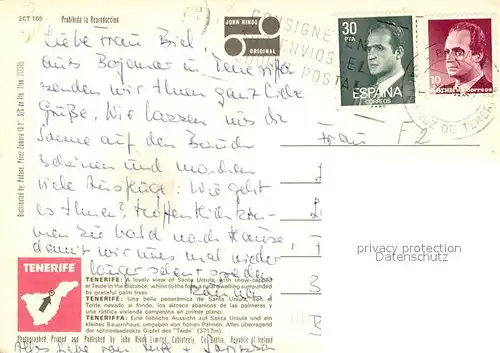 2CT 165
Prohibida la Reproduccion
JOHN HINDE
ORIGINAL
CONSIGNE
EN
ENVIOS
EL
POSTAL
30
PTA
ESPAÑA
CORREOS
10
Distributed by
Liebe Frau Biel,
aus Bajamar in Teneriffa
senden wir Ihnen ganz liebe
Grüße. Wir lassen uns die
Sonne auf den Bauch
scheinen und machen
viele Ausflüge. Wie geht
es Ihnen? Hoffentlich kom-
men Sie bald nach Hause,
damit wir uns mal wieder
länger sehen
Frau
F2
persönliche Angaben
Datenschutz
TENERIFE
TENERIFE: A lovely view of Santa Ursula, with snow-capped
el Teide in the distance; whilst to the fore a rural dwelling surrounded
by graceful palm trees.
TENERIFE: Una bella panorámica de Santa Ursula con el
Teide nevado al fondo, los airosos abanicos de las palmeras y
una rústica vivienda campesina en primer plano.
TENERIFFA: Eine liebliche Aussicht auf Santa Ursula und ein
kleines Bauernhaus, umgeben von hohen Palmen. Alles überragend
der schneebedeckte Gipfel des "Teide" (3717m).
Photographed, Printed and Published by John Hinde Limited, Cabinteely, Co. Dublin, Republic of Ireland
Alles Liebe von